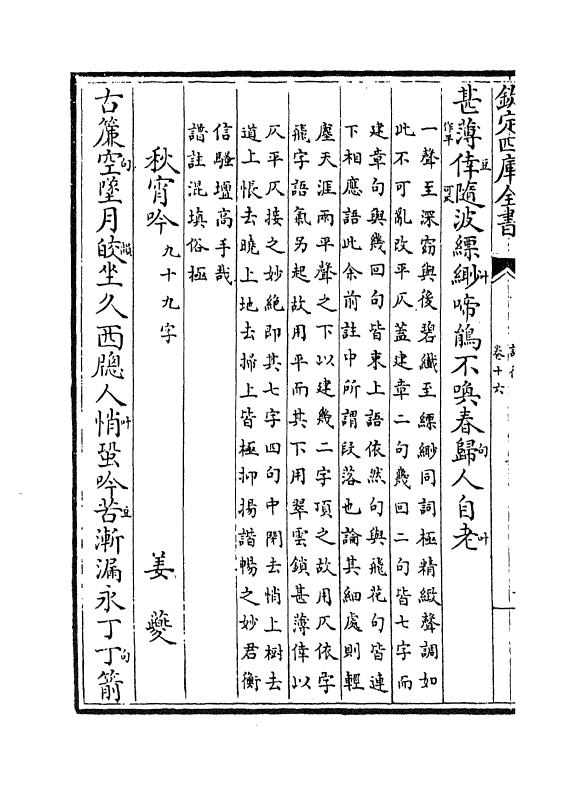 欽定四庫全書
卷十六
甚薄倖豆隨波縹緲叶啼鵑不喚春歸句人自老叶
一聲至深窈與後碧纖至縹緲同詞極精緻聲調如
此不可亂改平仄蓋建章二句幾回二句皆七字而
建章句與幾回句皆束上語依然句與飛花句皆連
下相應語此余前註中所謂段落也論其細處則輕
塵天涯兩平聲之下以建幾二字頂之故用仄依字
飛字語氣另起故用平而其下用翠雲鎖甚薄倖以
仄平仄接之妙絶即其七字四句中閉去悄上樹去
道上悵去曉上地去掃上皆極抑揚諧暢之妙君衡
信騷壇高手哉
譜註混填俗極
秋宵吟 九十九字 姜夔
古簾空句墜月皎韻坐久西牕人悄叶蛩吟苦豆漸漏永丁丁句箭